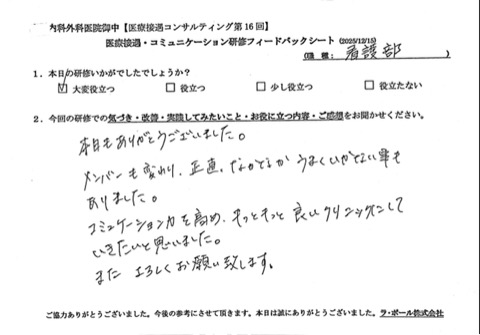 内科外科医院御中【医療接遇コンサルティング第16回】
医療接遇・コミュニケーション研修フィードバックシート (2025/12/15)
(職種: 看護部 )
1. 本日の研修いかがでしたでしょうか?
☑ 大変役立つ □ 役立つ □ 少し役立つ □ 役立たない
2. 今回の研修での気づき・改善・実践してみたいこと・お役に立つ内容・ご感想をお聞かせください。
本日もありがとうございました。
メンバーも変わり、正直、なかなか うまくいかない事も
ありました。
コミュニケーション力を高め、もっともっと良いクリニックにして
いきたいと思いました。
また よろしくお願い致します。
ご協力ありがとうございました。今後の参考にさせて頂きます。本日は誠にありがとうございました。ラ・ポール株式会社